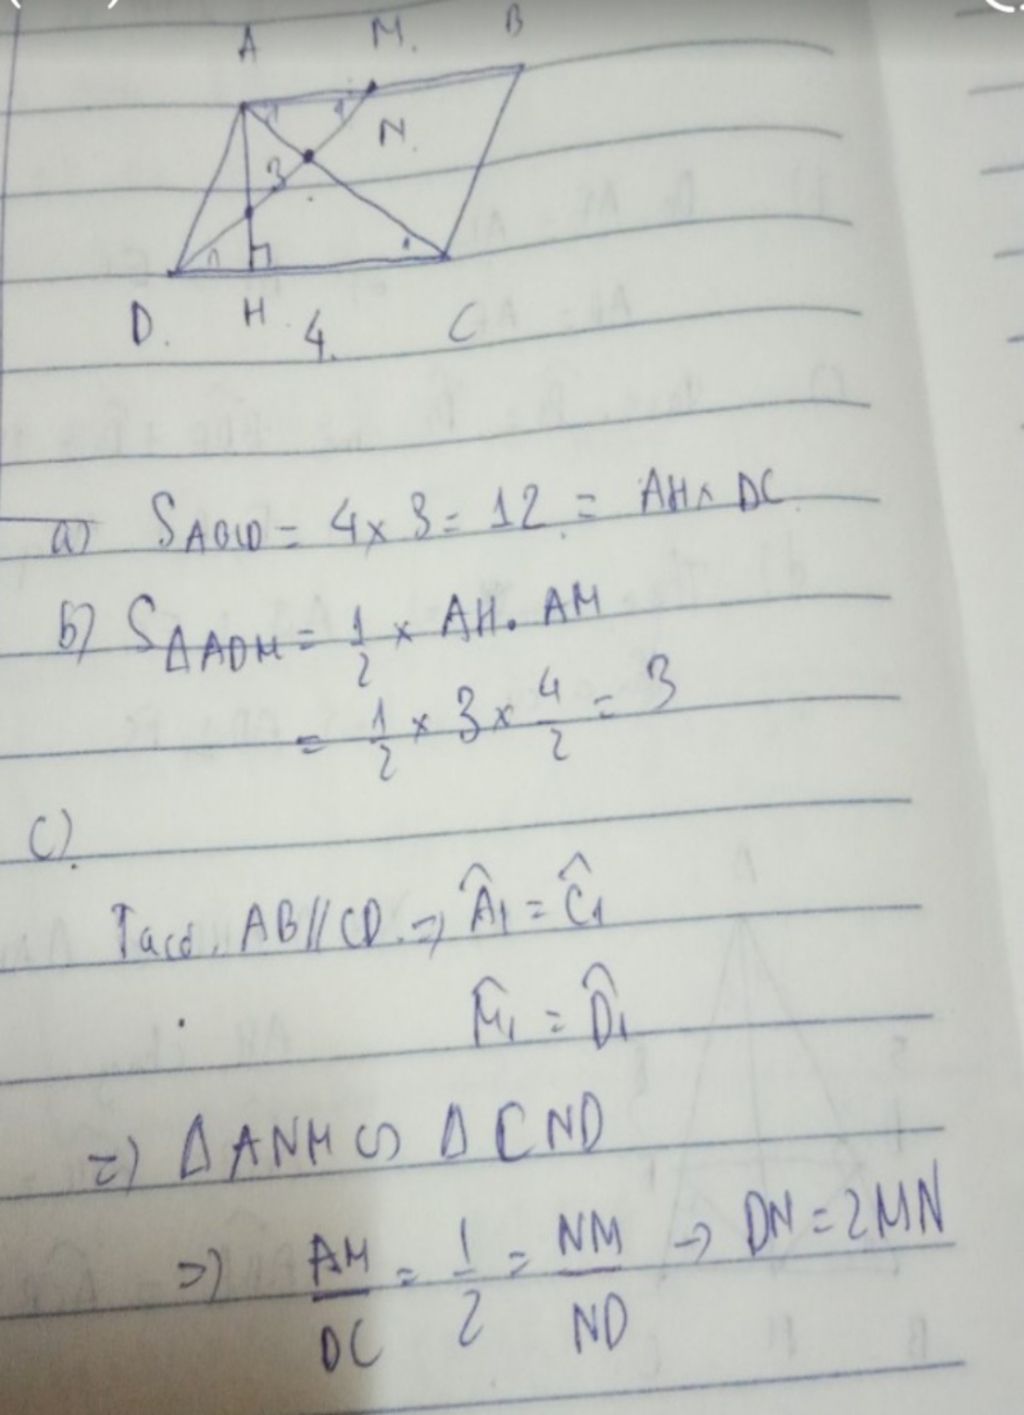 A M. B
1 1 N.
3
1 1
D. H 4. C
a) SABCD = 4 x 3 = 12 = AH x DC
b) SΔADM = 1/2 x AH. AM
= 1/2 x 3 x 4/2 = 3
c).
Ta có. AB//CD. => Â1 = Ĉ1
M̂1 = D̂1
=> ΔANM ᔕ ΔCND
=> AM/DC = 1/2 = NM/ND → DN = 2MN